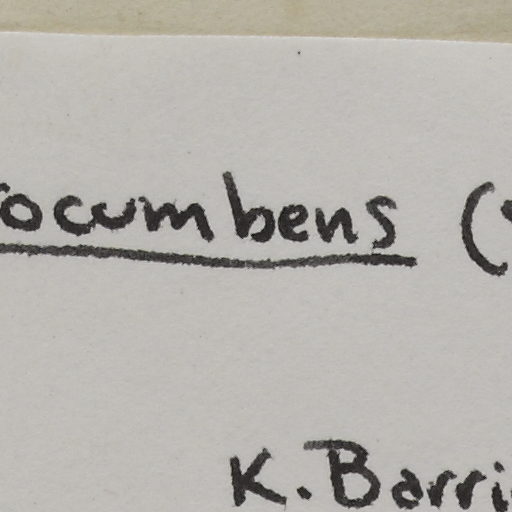 rocumbens (
K. Barri